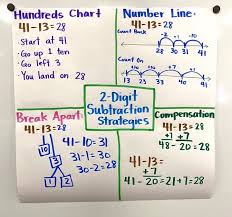 Hundreds Chart
41-13=28
· Start at 41
· Go up 1 ten
· Go left 3
· You land on 28
Number Line
41-13=28
Count Back
28 30 31 41
Count On
13 23
2-Digit
Subtraction
Strategies
Break Apart
41-13=28
10 3
1 2
41-10=31
31-1=30
30-2=28
Compensation
41-13=28
+7 +7
48-20=28
41-13=
+7
41-20=21+7=28